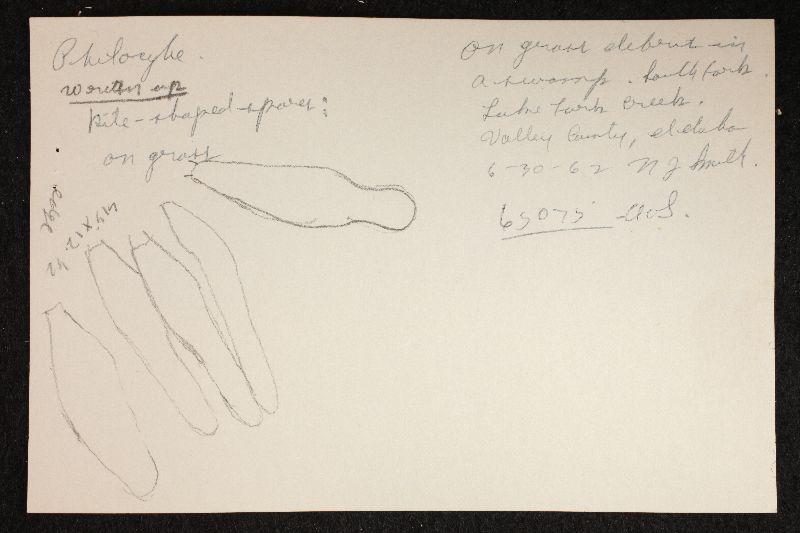 Psilocybe.
written up
kite-shaped-spores:
on grass
edge
45 x 12
On grass debris in
a swamp. South Fork.
Lake Fork Creek.
Valley County, Idaho
6-30-62 N J Smith.
65075 AHS.